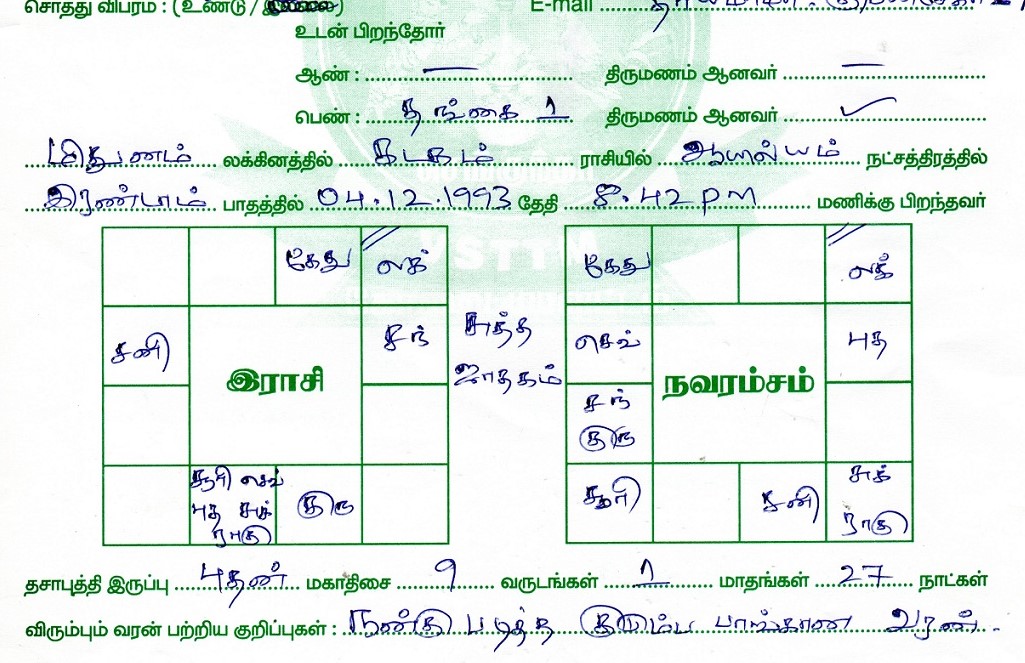 சொத்து விபரம் : (உண்டு / இல்லை) E-mail
உடன் பிறந்தோர்
ஆண் : — திருமணம் ஆனவர் —
பெண் : தங்கை 1 திருமணம் ஆனவர் ✓
மிதுனம் லக்கினத்தில் கடகம் ராசியில் ஆயில்யம் நட்சத்திரத்தில்
இரண்டாம் பாதத்தில் 04.12.1993 தேதி 8.42 pm மணிக்கு பிறந்தவர்
கேது லக் கேது லக்
சனி சந் சுத்த ஜாதகம் செவ் புத
இராசி நவரம்சம்
சந் குரு
சூரி செவ் புத சுக் ராகு குரு சூரி சனி சுக் ராகு
தசாபுத்தி இருப்பு புதன் மகாதிசை 9 வருடங்கள் 1 மாதங்கள் 27 நாட்கள்
விரும்பும் வரன் பற்றிய குறிப்புகள் : நன்கு படித்த குடும்ப பாங்கான வரன்.